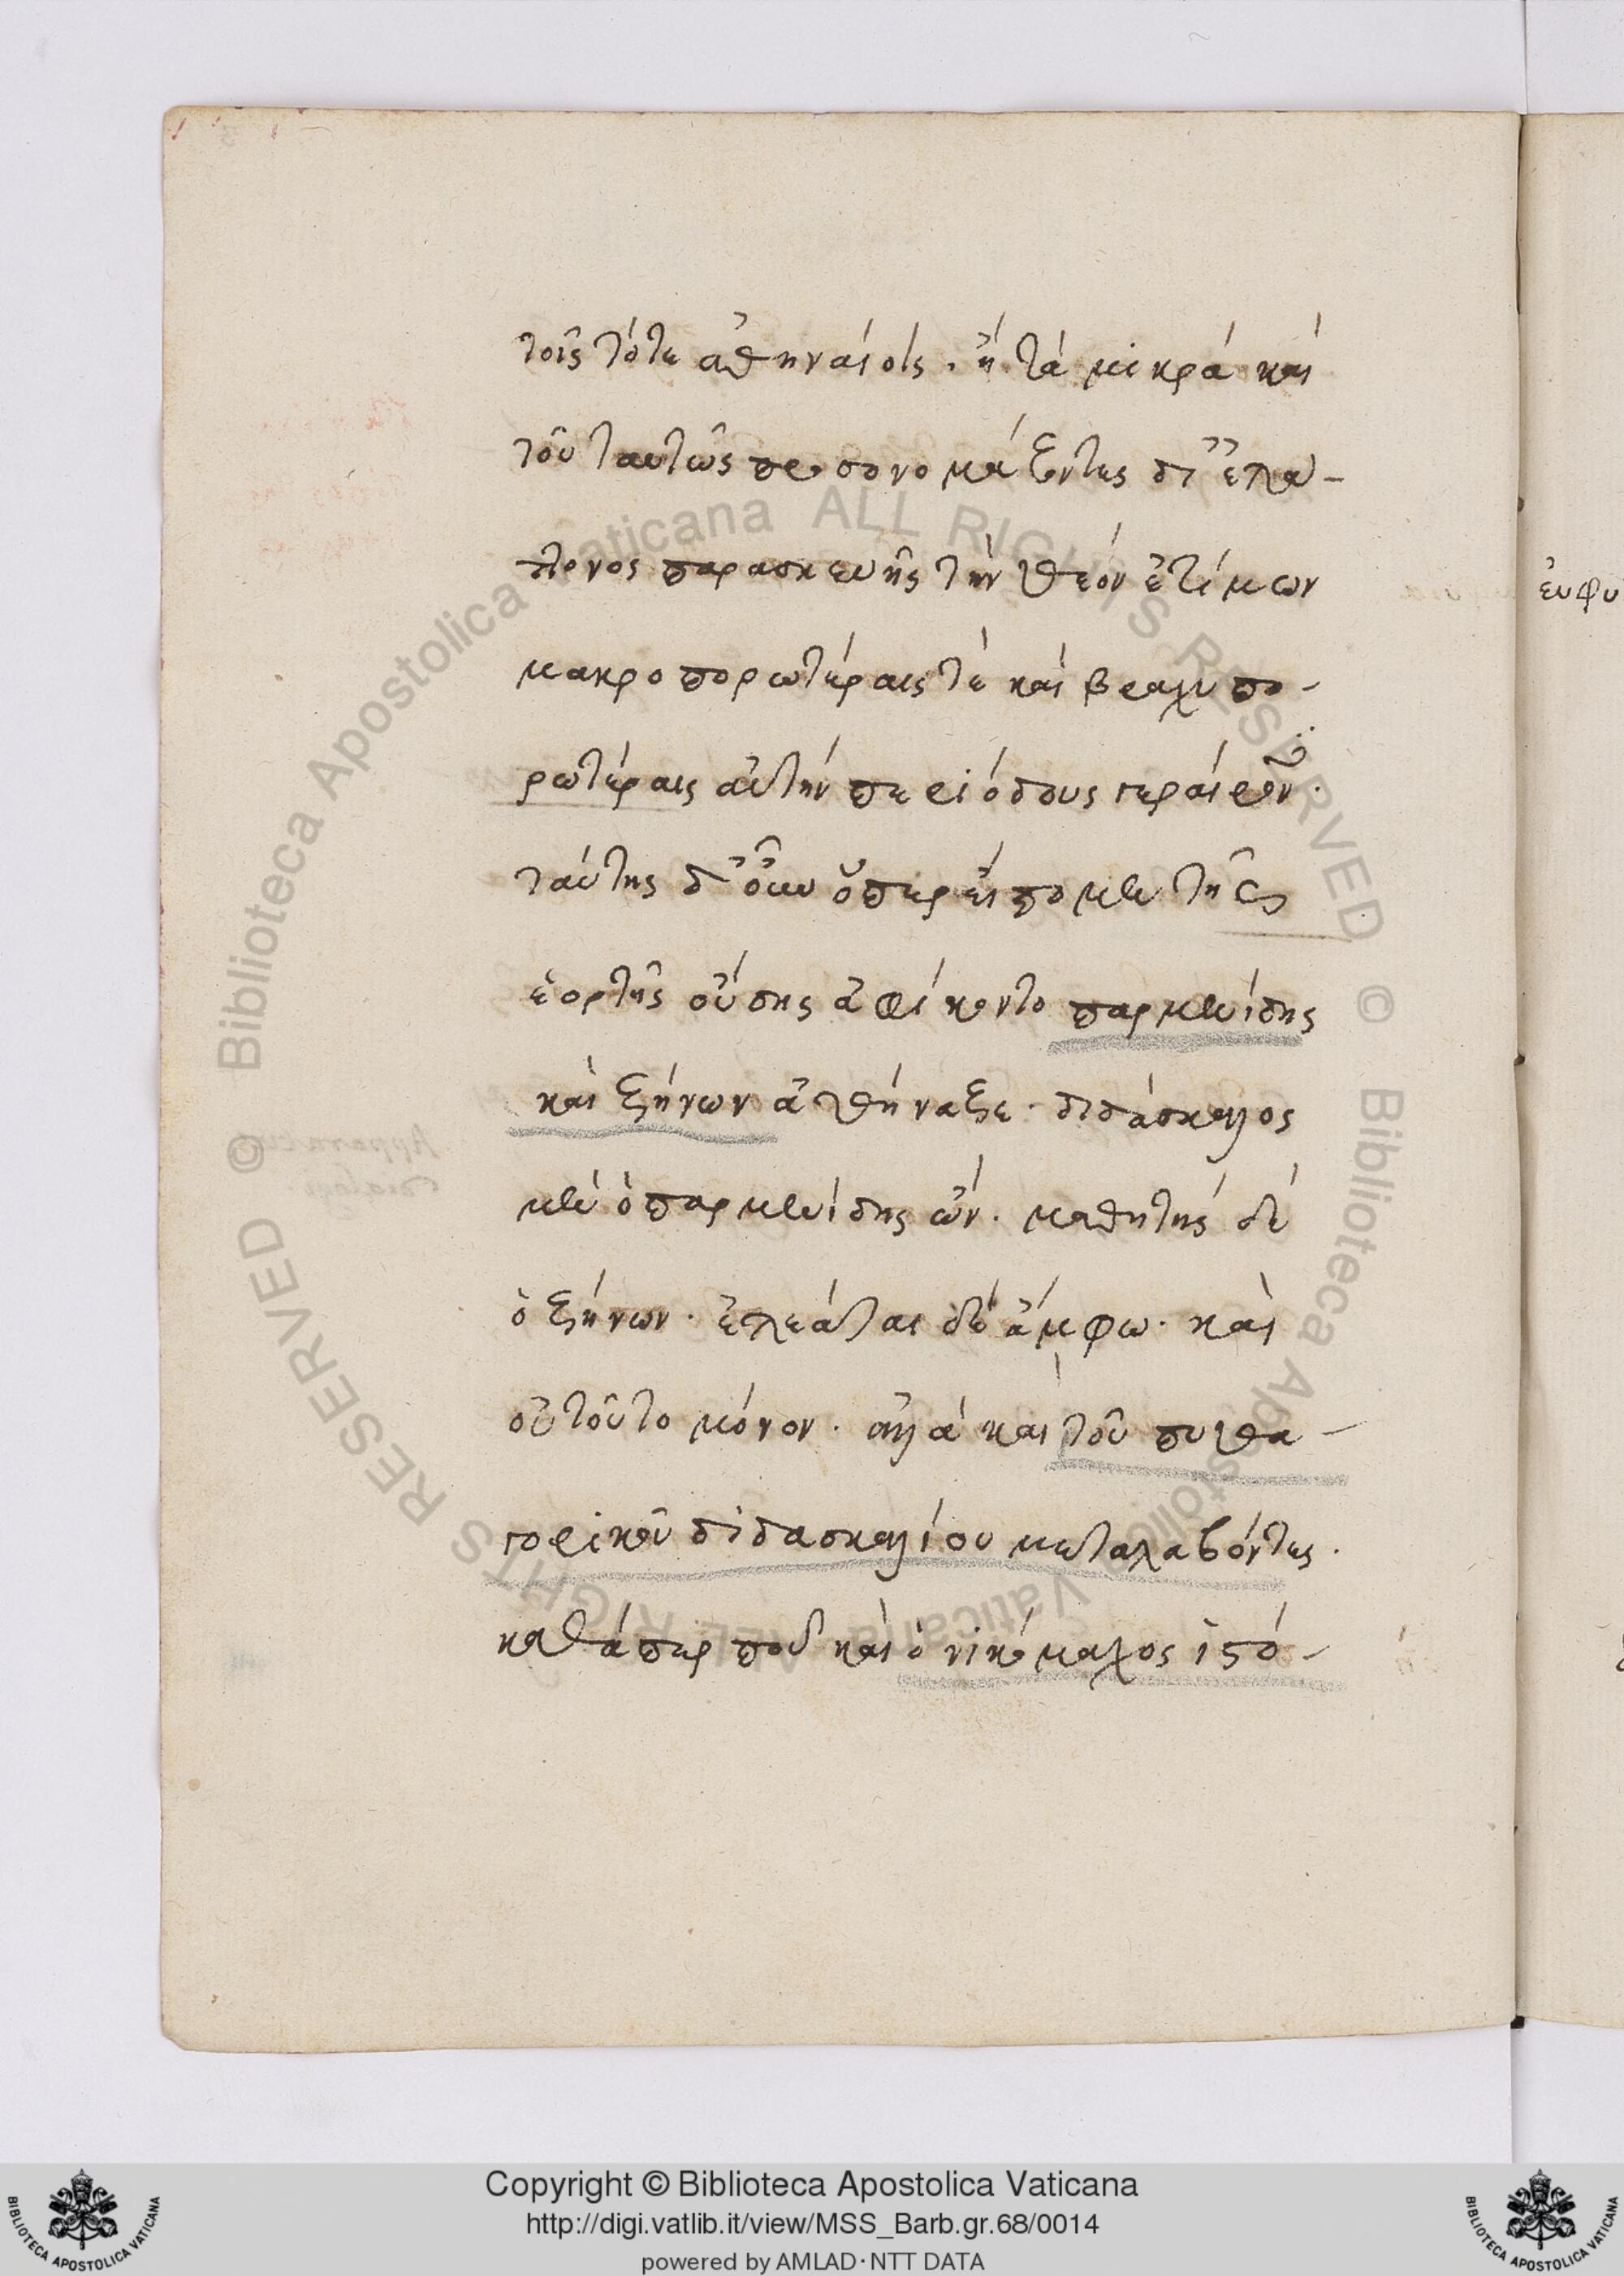 τοῖς τότε ἀθηναίοις. ἢ τὰ μικρὰ καὶ
τοῦ ταυτῶς προσονομάζοντες δι’ ἐλάτ-
τονος παρασκευῆς τὴν θεὸν ἐτίμων
μακροπορωτέραις τὲ καὶ βραχυπο-
ρωτέραις αὐτὴν περιόδους γεραίρον.
ταύτης δ’ οὖν ὅπερ εἴπομεν τῆς
ἑορτῆς οὔσης ἀφίκοντο παρμενίδης
καὶ ζήνων ἀθήναζε. διδάσκαλος
μὲν ὁ παρμενίδης ὤν. μαθητὴς δὲ
ὁ ζήνων. ἐλεάται δὲ ἄμφω. καὶ
οὐ τοῦτο μόνον. ἀλλὰ καὶ τοῦ πυθα-
γορικοῦ διδασκαλίου μεταλαβόντες.
καθάπερ που καὶ ὁ νικόμαχος ἱστό-
ἐυφυ
Copyright © Biblioteca Apostolica Vaticana
http://digi.vatlib.it/view/MSS_Barb.gr.68/0014
powered by AMLAD·NTT DATA
BIBLIOTECA APOSTOLICA VATICANA
BIBLIOTECA APOSTOLICA VATICANA
© Biblioteca Apostolica Vaticana ALL RIGHTS RESERVED
© Biblioteca Apostolica Vaticana ALL RIGHTS RESERVED